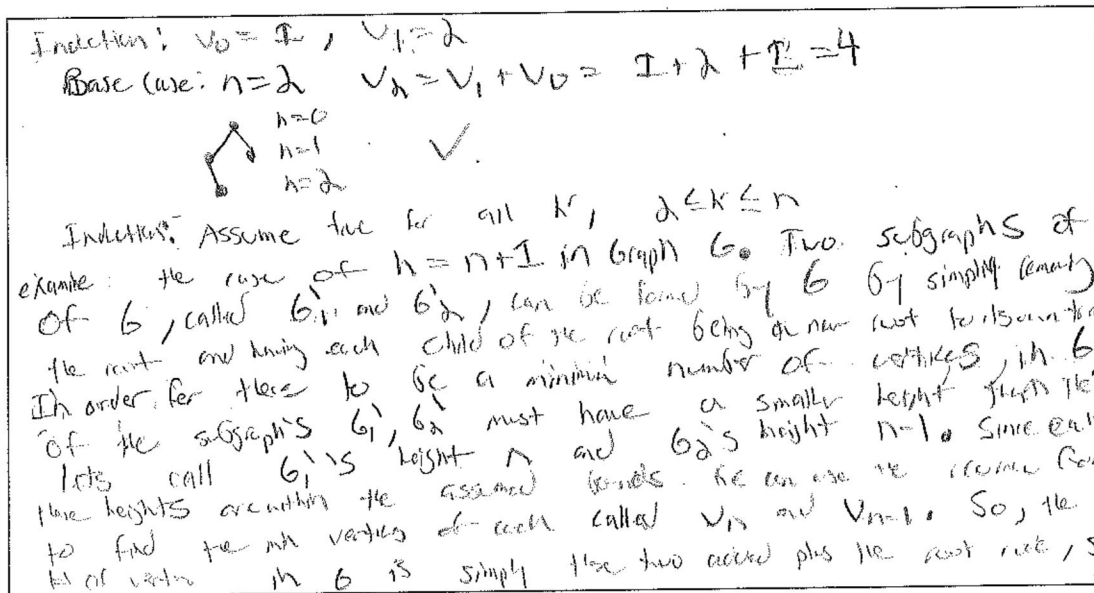 Induction: V₀ = 1, V₁ = 2
Base Case: n=2 V₂ = V₁ + V₀ = 1 + 2 + 1 = 4
h=0
h=1 ✓.
h=2
Induction: Assume true for all k, 2 ≤ k ≤ n
examine the case of h = n+1 in Graph G. Two subgraphs of
of G, called G₁' and G₂', can be formed by G by simply removing
the root and having each child of the root being a new root to its own
In order for there to be a minimum number of vertices, in G
of the subgraph's G₁', G₂' must have a smaller height than the
lets call G₁'s height n and G₂'s height n-1. Since
these heights are within the assumed bounds. We can use the
to find the min vertices of each called Vₙ and Vₙ₋₁. So, the
of in G is simply these two added plus the root